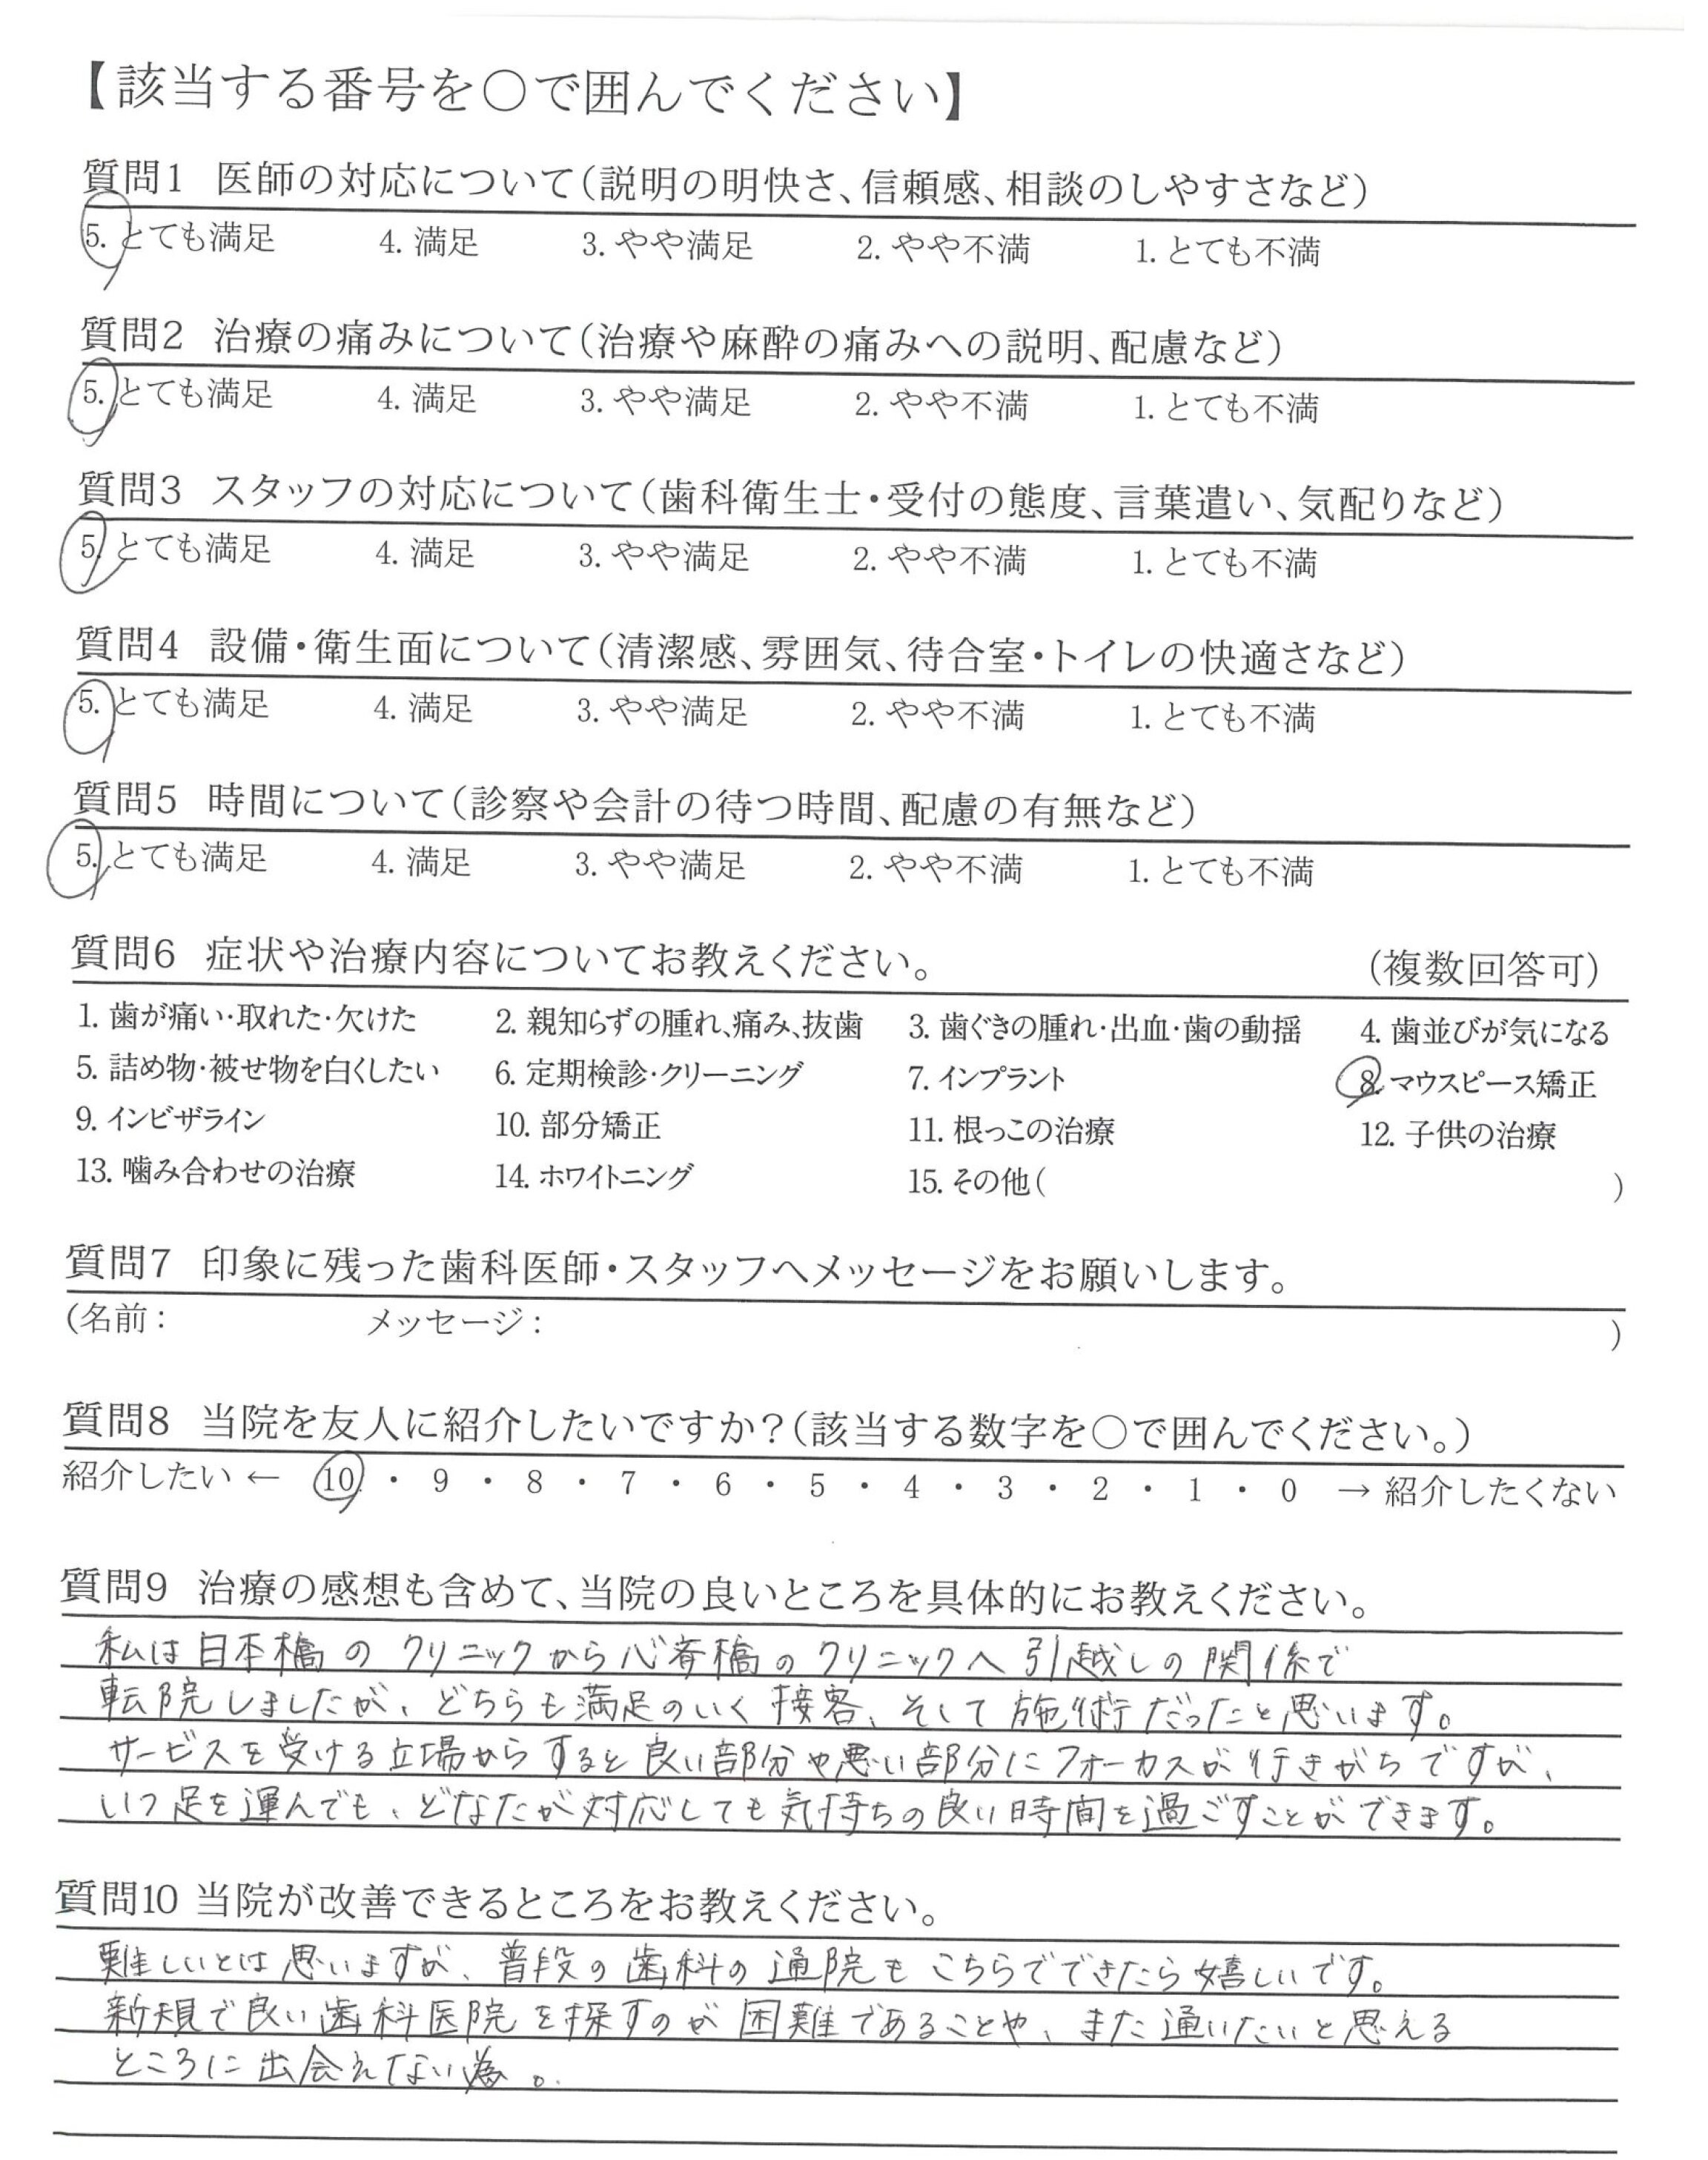 【該当する番号を○で囲んでください】
質問1 医師の対応について(説明の明快さ、信頼感、相談のしやすさなど)
5. とても満足 4. 満足 3. やや満足 2. やや不満 1. とても不満
質問2 治療の痛みについて(治療や麻酔の痛みへの説明、配慮など)
5. とても満足 4. 満足 3. やや満足 2. やや不満 1. とても不満
質問3 スタッフの対応について(歯科衛生士・受付の態度、言葉遣い、気配りなど)
5. とても満足 4. 満足 3. やや満足 2. やや不満 1. とても不満
質問4 設備・衛生面について(清潔感、雰囲気、待合室・トイレの快適さなど)
5. とても満足 4. 満足 3. やや満足 2. やや不満 1. とても不満
質問5 時間について(診察や会計の待つ時間、配慮の有無など)
5. とても満足 4. 満足 3. やや満足 2. やや不満 1. とても不満
質問6 症状や治療内容についてお教えください。 (複数回答可)
1. 歯が痛い・取れた・欠けた 2. 親知らずの腫れ、痛み、抜歯 3. 歯ぐきの腫れ・出血・歯の動揺 4. 歯並びが気になる
5. 詰め物・被せ物を白くしたい 6. 定期検診・クリーニング 7. インプラント 8. マウスピース矯正
9. インビザライン 10. 部分矯正 11. 根っこの治療 12. 子供の治療
13. 噛み合わせの治療 14. ホワイトニング 15. その他( )
質問7 印象に残った歯科医師・スタッフへメッセージをお願いします。
(名前: メッセージ: )
質問8 当院を友人に紹介したいですか?(該当する数字を○で囲んでください。)
紹介したい ← 10 ・ 9 ・ 8 ・ 7 ・ 6 ・ 5 ・ 4 ・ 3 ・ 2 ・ 1 ・ 0 → 紹介したくない
質問9 治療の感想も含めて、当院の良いところを具体的にお教えください。
私は日本橋のクリニックから心斎橋のクリニックへ引越しの関係で
転院しましたが、どちらも満足のいく接客、そして施術だったと思います。
サービスを受ける立場からすると良い部分や悪い部分にフォーカスが行きがちですが、
いつ足を運んでも、どなたが対応しても気持ちの良い時間を過ごすことができます。
質問10 当院が改善できるところをお教えください。
難しいとは思いますが、普段の歯科の通院もこちらでできたら嬉しいです。
新規で良い歯科医院を探すのが困難であることや、また通いたいと思える
ところに出会えてない為。